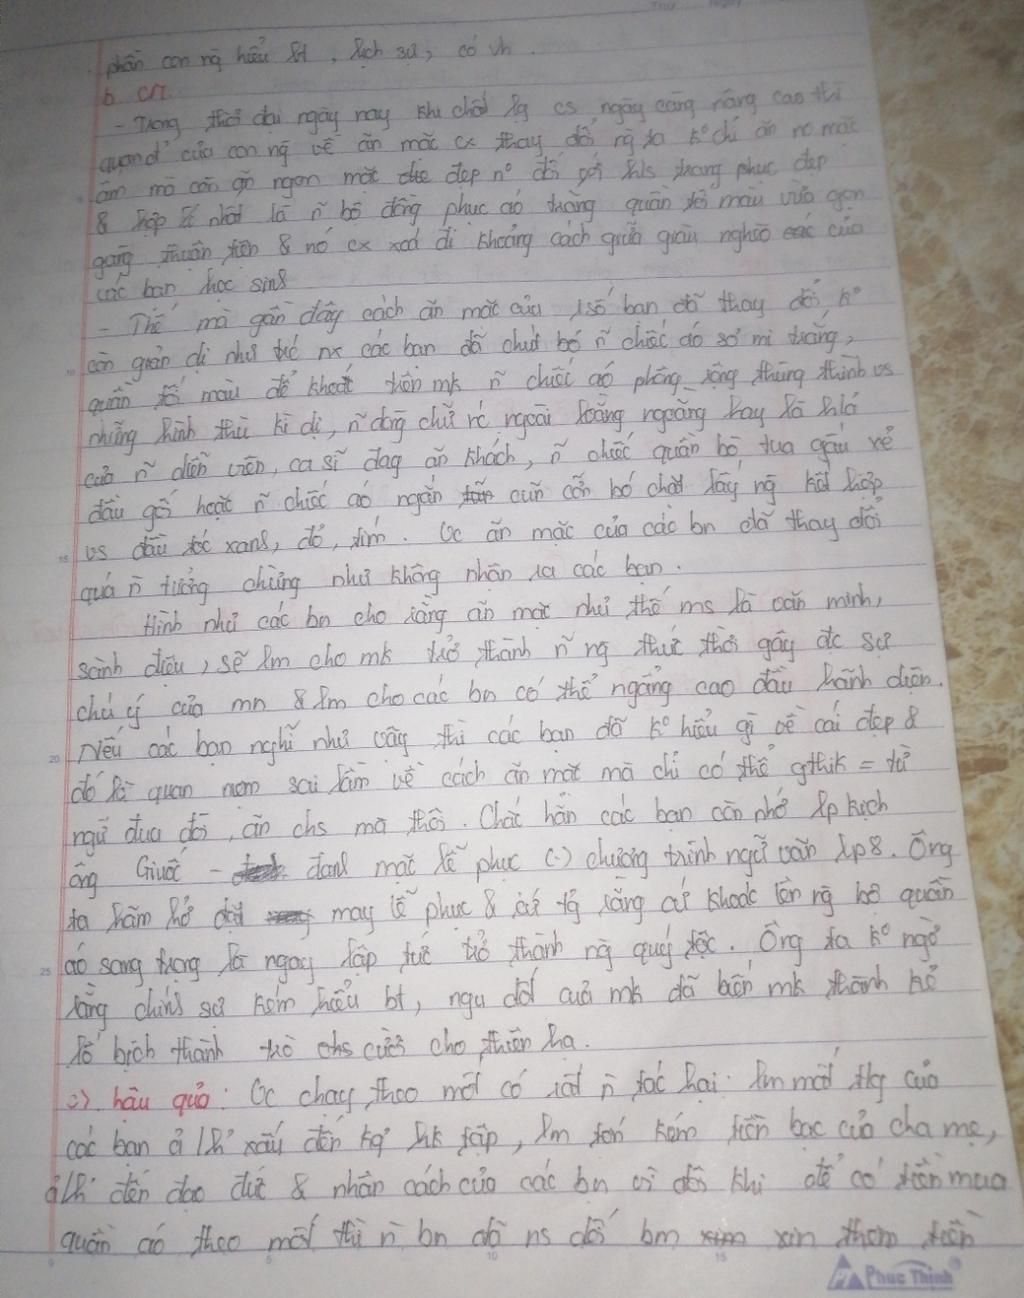 phần con ng hiểu bt, lịch sự, có vh.
b. CM.
- Trong thời đại ngày nay khi chất lg cs ngày càng nâng cao thì
quan đ' của con ng về ăn mặc cx thay đổi ng ta ko chỉ ăn no mặc
ấm mà còn ăn ngon mặc đẹp nº đối với hs trang phục đẹp
& hợp lí nhất là ~ bộ đồng phục áo trắng quần tối màu vừa gọn
gàng thuận tiện & nó cx xoá đi khoảng cách giữa giàu nghèo của
các bạn học sinh
- Thế mà gần đây cách ăn mặc của 1 số bạn đã thay đổi ko
còn giản dị như trc nx các bạn đã chút bỏ ~ chiếc áo sơ mi trắng,
quần tối màu để khoác trên mk ~ chiếc áo phông rộng thùng thình vs
những hình thù kì dị, ~ dòng chữ nc ngoài loằng ngoằng hay là h/ả
của ~ diễn viên, ca sĩ đag ăn khách, ~ chiếc quần bò tua gấu xẻ
đầu gối hoặc ~ chiếc áo ngắn cũn cỡn bó chặt lấy ng kết hợp
vs đầu tóc xanh, đỏ, tím. Vc ăn mặc của các bn đã thay đổi
quá n̄ tưởng chừng như không nhận ra các bạn.
Hình như các bn cho rằng ăn mặc như thế ms là văn minh,
sành điệu, sẽ lm cho mk trở thành ~ ng thức thời gây đc sự
chú ý của mn & lm cho các bn có thể ngẩng cao đầu hãnh diện.
Nếu các bạn nghĩ như vậy thì các bạn đã ko hiểu gì về cái đẹp &
đó là quan niệm sai lầm về cách ăn mặc mà chỉ có thể gthik = từ
ngữ đua đòi, ăn chs mà thôi. Chắc hẳn các bạn còn nhớ lp kịch
ông Giuốc - đanh mặc lễ phục (.) chương trình ngữ văn lp 8. Ông
ta hăm hở đặt may lễ phục & cứ tg rằng cứ khoác lên ng bộ quần
áo sang trọng là ngay lập tức trở thành ng quý tộc. Ông ta ko ngờ
rằng chính sự kém hiểu bt, ngu dốt của mk đã biến mk thành kẻ
lố bịch thành trò chs cười cho thiên hạ.
c). hậu quả: Vc chạy theo mốt có rất n̄ tác hại: lm mất tg của
các bạn ả/h' xấu đến kq' hk tập, lm tốn kém tiền bạc của cha mẹ,
ả/h' đến đạo đức & nhân cách của các bn vì đôi khi để có tiền mua
quần áo theo mốt thì n̄ bn đã ns dối bm xin thêm tiền
Phuc Thinh